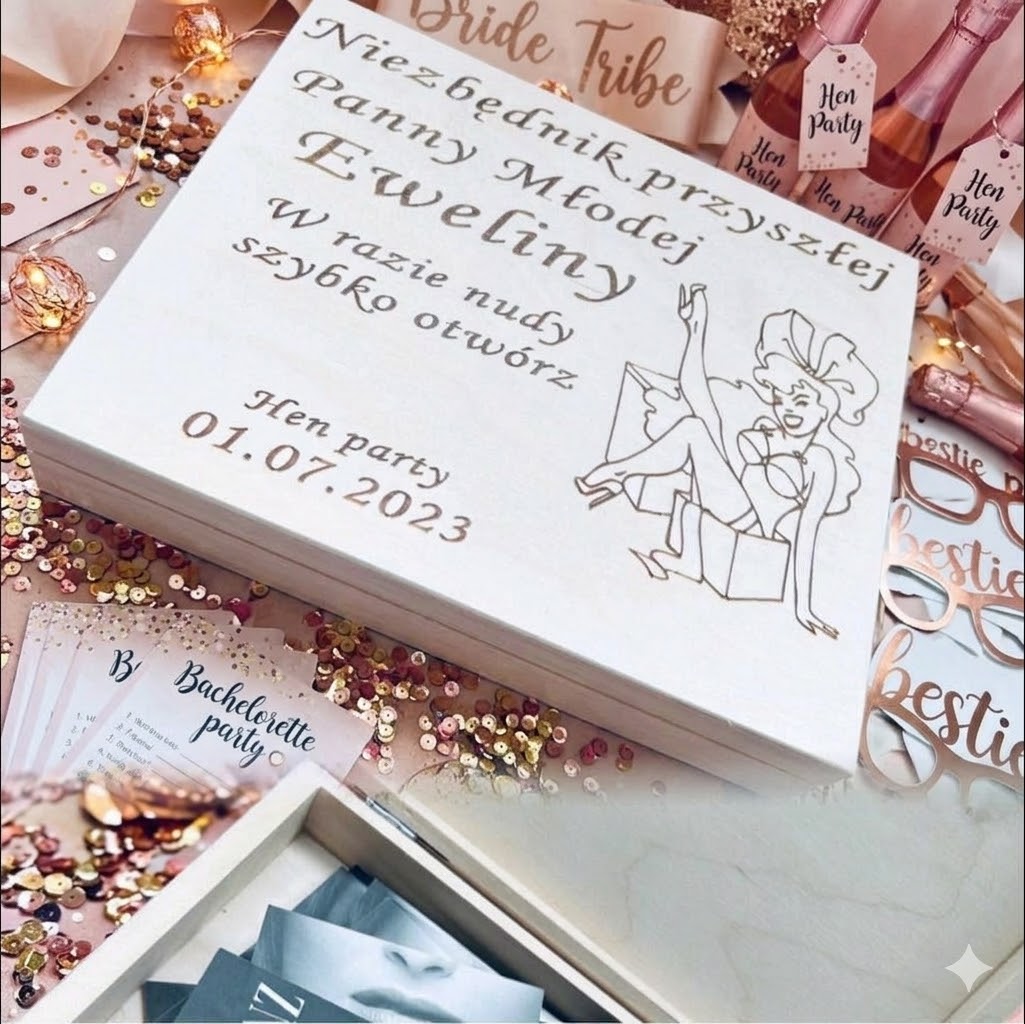 Bride Tribe
Niezbędnik przyszłej
Panny Młodej
Eweliny
W razie nudy
szybko otwórz
Hen party
01.07.2023
Hen
Party
Hen
Party
Hen
Party
Hen Party
Hen
bestie
bestie
bestie
Bachelorette
party